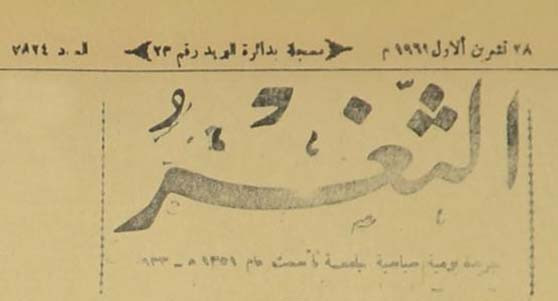 ٢٨ تشرين الاول ١٩٦١ م مسجلة بدائرة البريد رقم ٢٣ العدد ٧٨٢٤
الثَّغْرُ
جريدة يومية سياسية جامعة تأسست عام ١٣٥١ ه - ٩٣٣